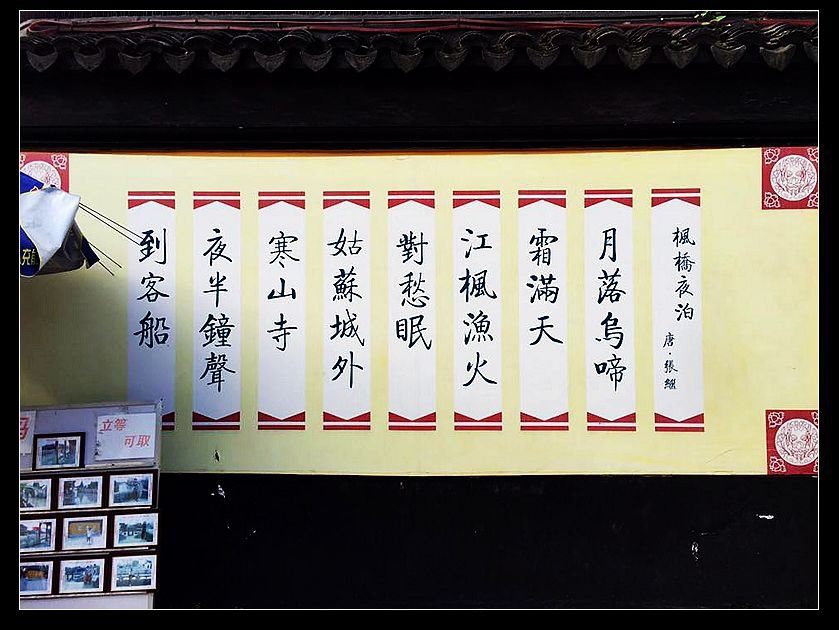 楓橋夜泊
唐·張繼
月落烏啼
霜滿天
江楓漁火
對愁眠
姑蘇城外
寒山寺
夜半鐘聲
到客船
立等
可取